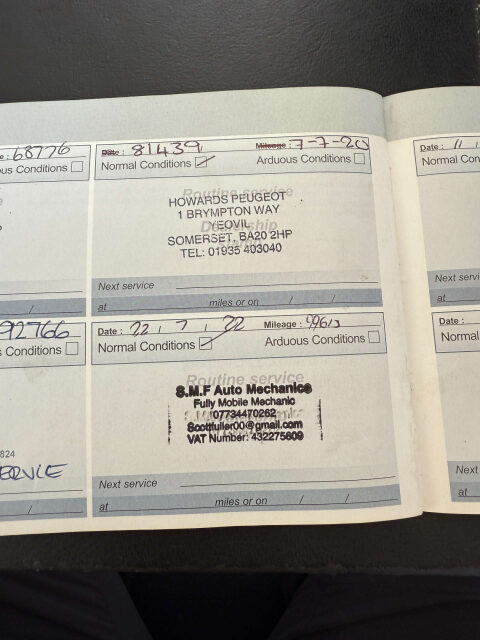 e : 68776
us Conditions
Date : 81439 Mileage : 7-7-20
Normal Conditions Arduous Conditions
Routine service
HOWARDS PEUGEOT
1 BRYMPTON WAY
YEOVIL
SOMERSET, BA20 2HP
TEL: 01935 403040
Next service
at miles or on / /
Date : 11
Normal Con
Next servic
at
92766
s Conditions
824
SERVICE
/
Date : 22 / 7 / 22 Mileage :
Normal Conditions Arduous Conditions
Routine service
S.M.F Auto Mechanics
Fully Mobile Mechanic
07734470262
Scottfuller00@gmail.com
VAT Number: 432275609
Next service
at miles or on / /
Date :
Normal
Next
at